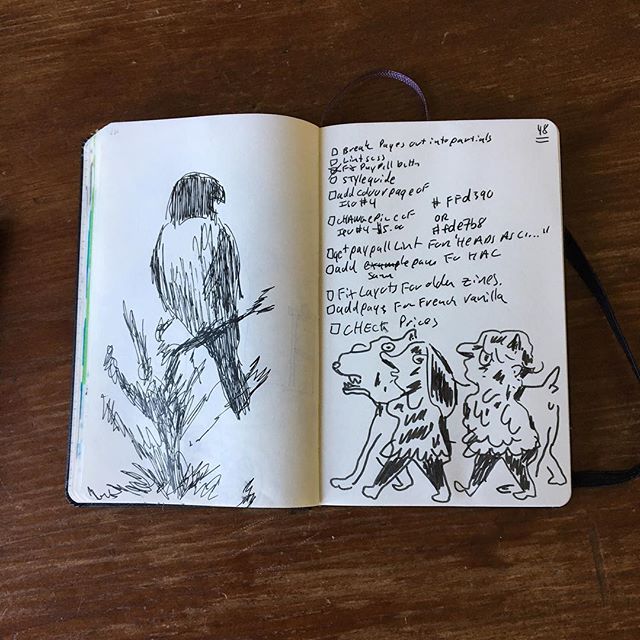 48
□ Break Pages out into partials
□ Lint scss
□ Fix PayPall butto
□ STyle guide
□ add colour page of
Iso #4
# FFd390
□ CHANGE Pic of
Iso #4 - $5.00
OR
# fde7b8
□ get paypall Lint For "HeADS AS Ci..."
□ add page For MAC
same
□ Fix Layouts For older Zines.
□ add pays For French Vanilla
□ CHECK Prices